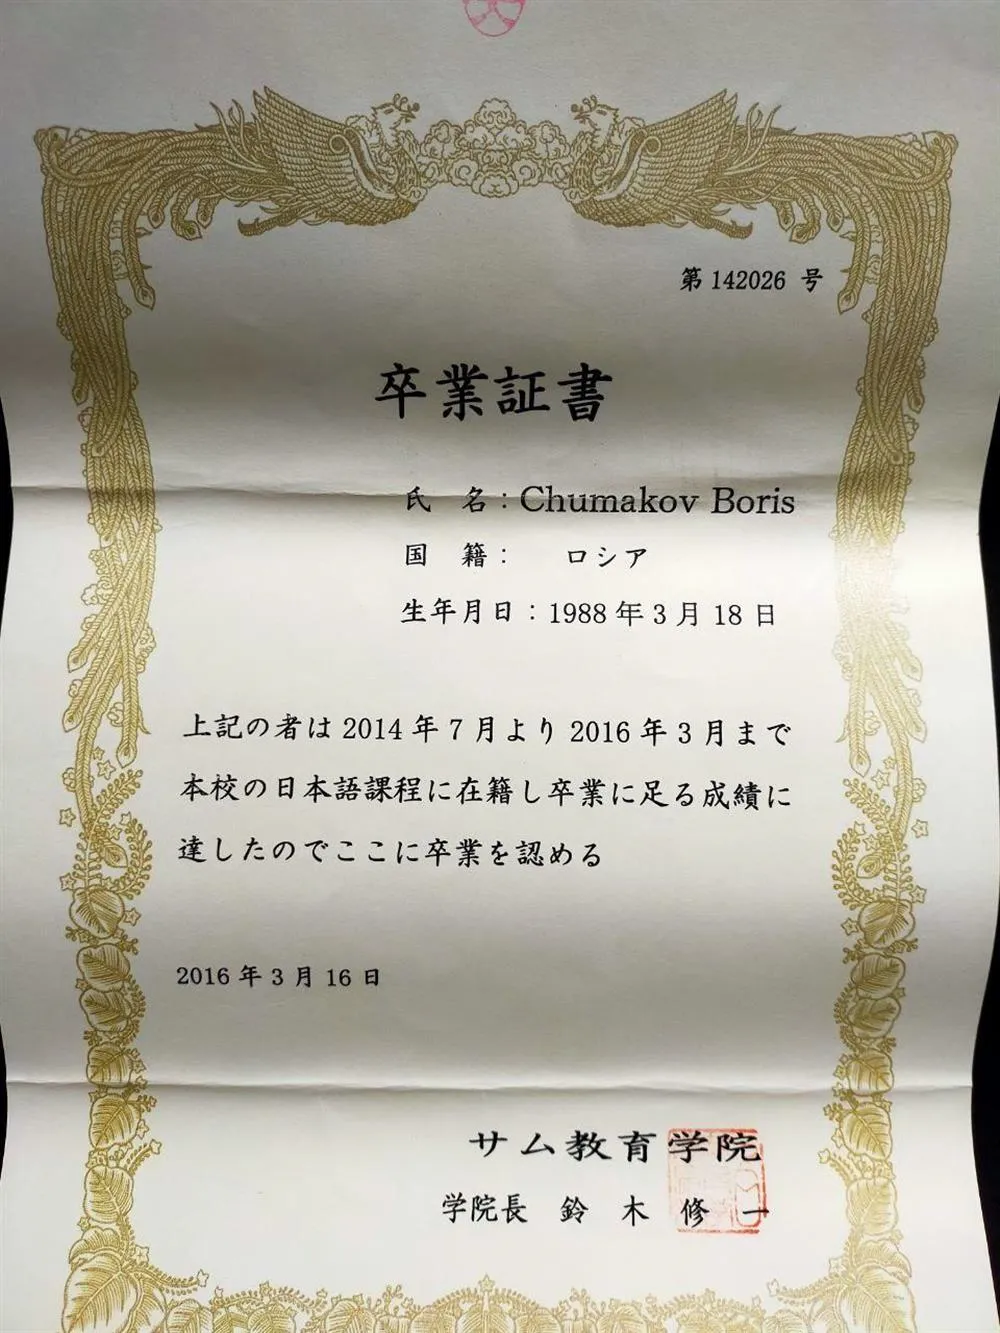 第142026号
卒業証書
氏 名：Chumakov Boris
国 籍： ロシア
生年月日：1988年3月18日
上記の者は2014年7月より2016年3月まで
本校の日本語課程に在籍し卒業に足る成績に
達したのでここに卒業を認める
2016年3月16日
サム教育学院
学院長 鈴木修一